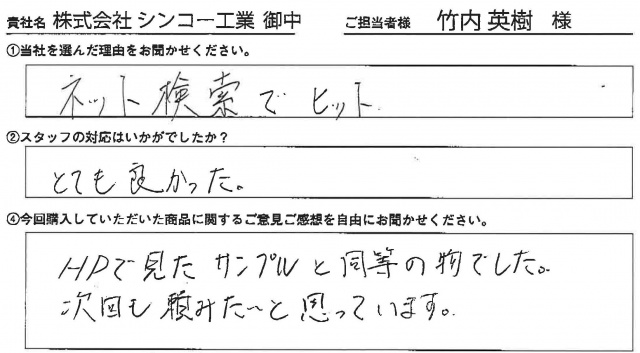 貴社名 株式会社 シンコー工業 御中 ご担当者様 竹内 英樹 様
①当社を選んだ理由をお聞かせください。
ネット検索でヒット
②スタッフの対応はいかがでしたか？
とても良かった。
④今回購入していただいた商品に関するご意見ご感想を自由にお聞かせください。
HPで見たサンプルと同等の物でした。
次回も頼みたいと思っています。